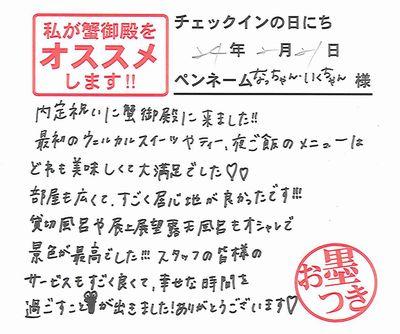 私が蟹御殿を
オススメ
します!!
チェックインの日にち
24年2月21日
ペンネームなっちゃん・いくちゃん 様
内定祝いに蟹御殿に来ました!!
最初のウェルカルスイーツやティー、夜ご飯のメニューは
どれも美味しくて大満足でした♡♡
部屋も広くて、すごく居心地が良かったです!!!
貸切風呂や屋上展望露天風呂もオシャレで
景色が最高でした!!! スタッフの皆様の
サービスもすごく良くて、幸せな時間を
過ごすことが出きました!ありがとうございます♡
お墨つき